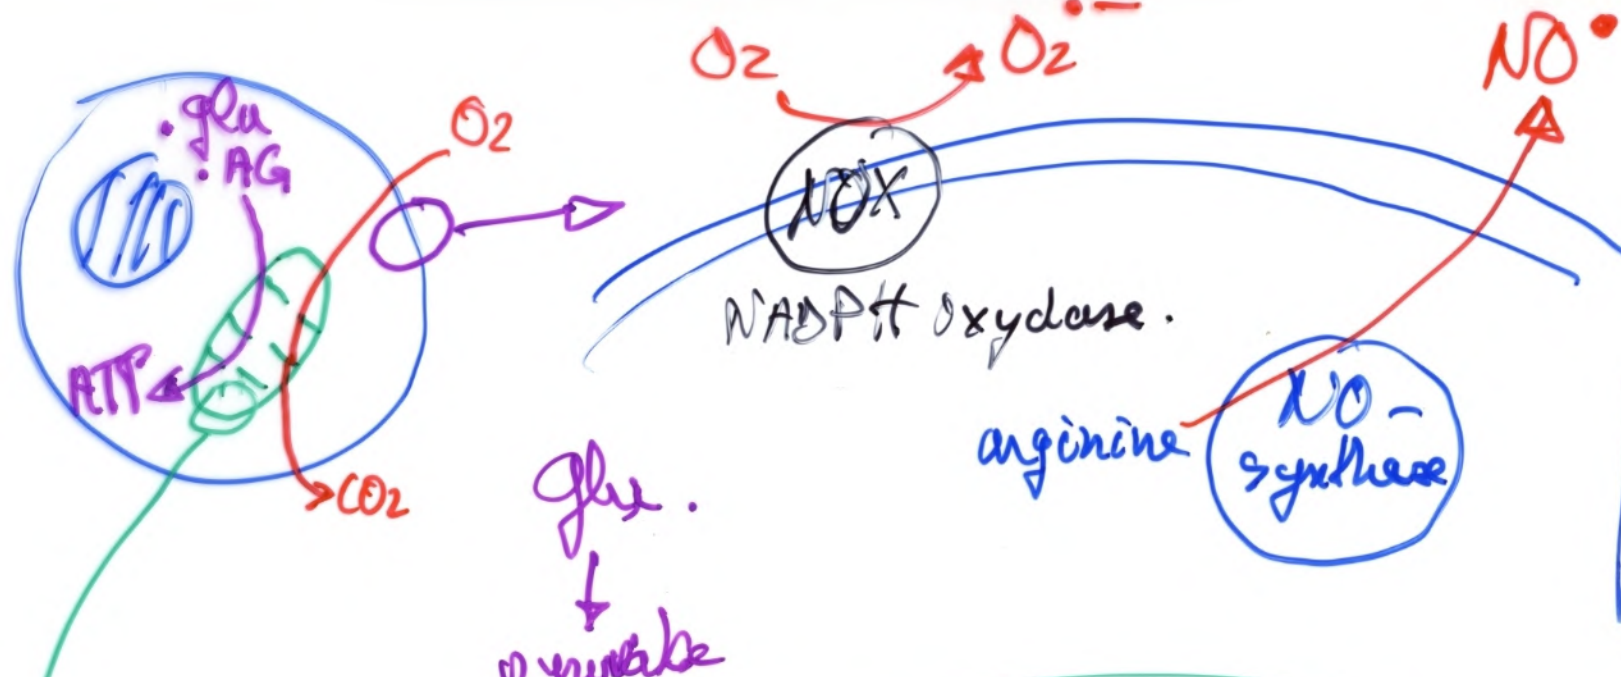 .glu
. AG
O2
ATP
CO2
O2
O2•−
NOX
NADPH oxydase.
NO•
arginine
NO-
synthase
glu.
pyruvate